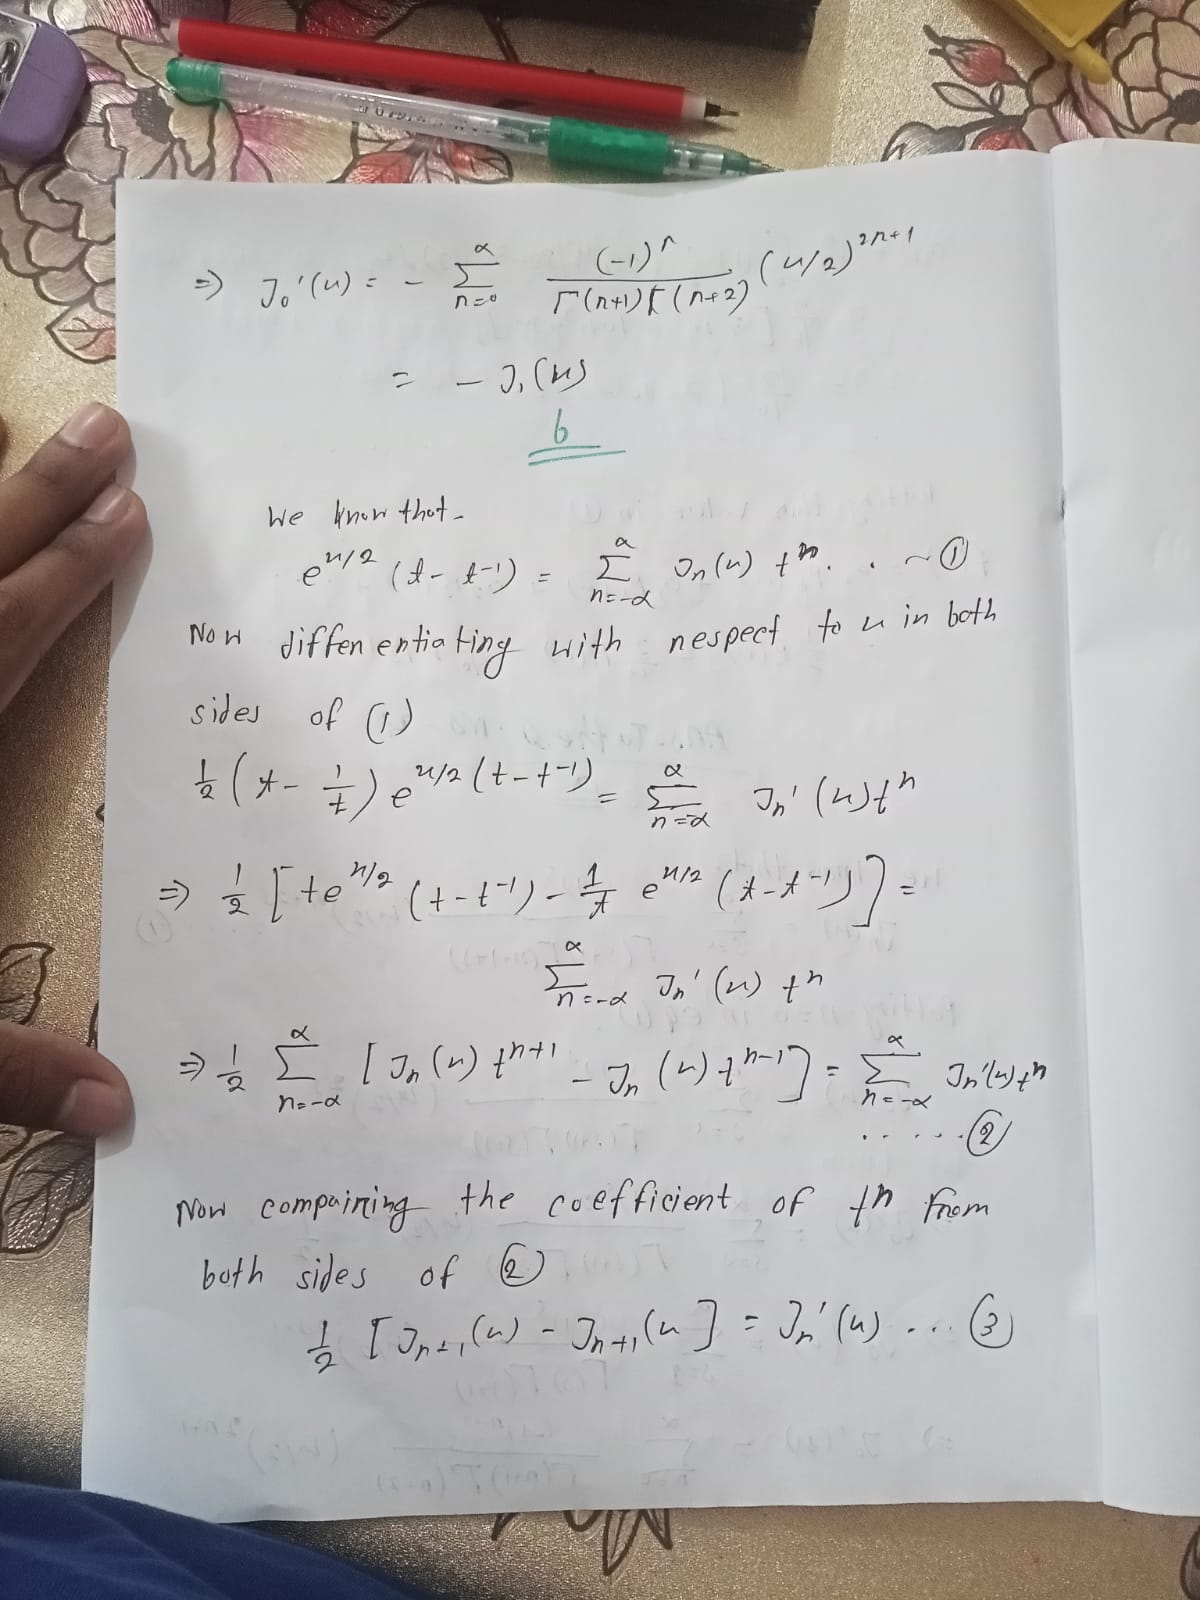 ⇒ J₀'(x) = - ∑_{n=0}^{α} (-1)ⁿ / Γ(n+1)Γ(n+2) (x/2)^{2n+1}
= - J₁(x)
6
We know that -
e^{x/2} (t - t⁻¹) = ∑_{n=-α}^{α} Jn(x) tⁿ . . ~ ①
Now differentiating with respect to x in both
sides of (1)
1/2 (t - 1/t) e^{x/2 (t - t⁻¹)} = ∑_{n=-α}^{α} Jn'(x) tⁿ
⇒ 1/2 [ t e^{x/2} (t - t⁻¹) - 1/t e^{x/2} (t - t⁻¹) ] =
∑_{n=-α}^{α} Jn'(x) tⁿ
⇒ 1/2 ∑_{n=-α}^{α} [ Jn(x) t^{n+1} - Jn(x) t^{n-1} ] = ∑_{n=-α}^{α} Jn'(x) tⁿ
. . . . . . ②
Now compairing the coefficient of tⁿ from
both sides of ②
1/2 [ J_{n±1}(x) - J_{n+1}(x ] = Jn'(x) ... ③